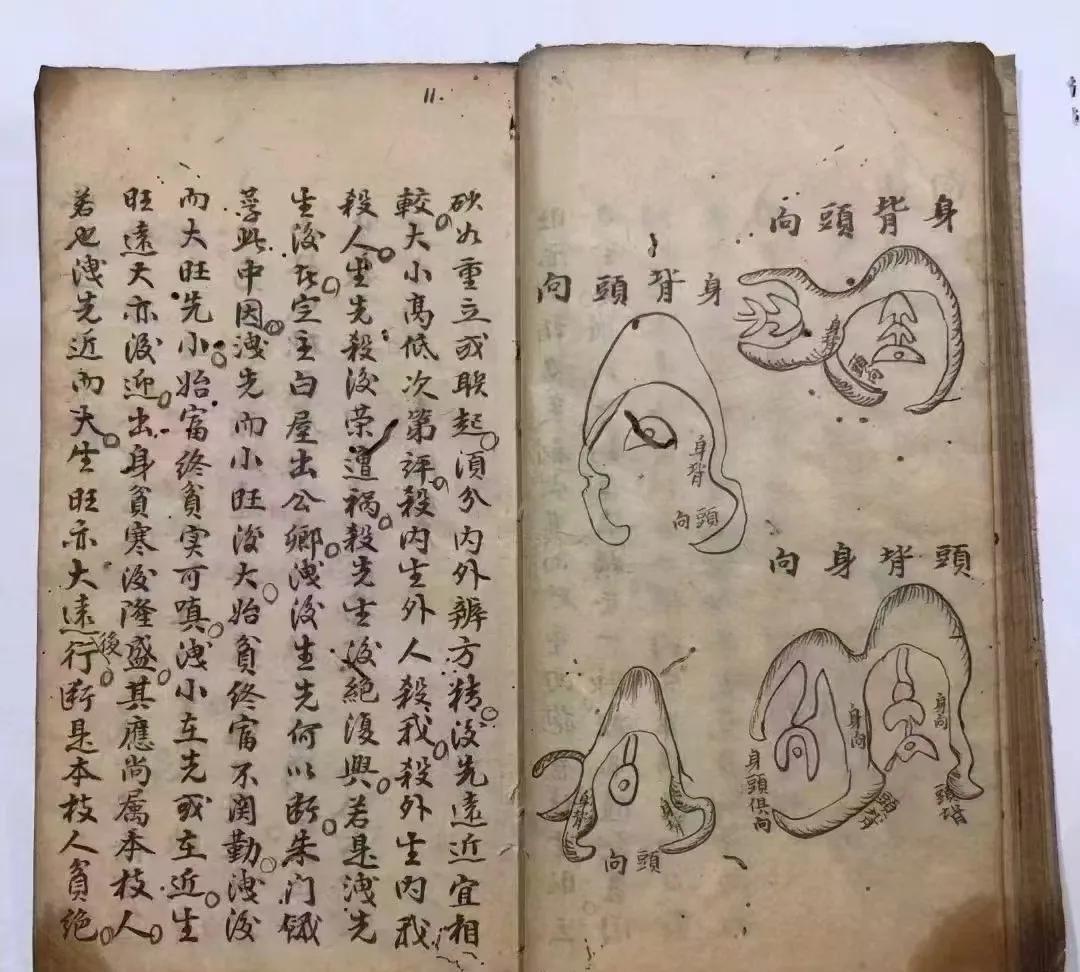 身背頭向
身背
頭向
身背頭向
身背
頭向
頭背身向
身向
頭背
身向
頭背
身頭俱向
身背
身背
頭向
11.
砂如重立或联起。須分内外辨方精。後先遠近宜相
較。大小高低次第評。殺内生外人殺我。殺外生内我
殺人。生先殺後荣遭禍。殺先生後絶復興。若是洩先
生後居。定主白屋出公卿。洩後生先何以断。朱门餓
莩此中因。洩先而小旺後大。始貧終富不関勤。洩後
而大旺先小。始富終貧实可嗔。洩小在先或在近。生
旺遠大亦後迎。出身貧寒後隆盛。其應尚属本枝人。
若也洩先近而大。生旺亦大遠行後。断是本枝人貧绝。